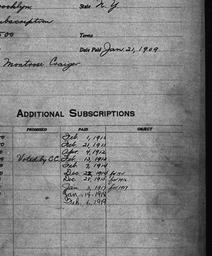 Brooklyn State N.Y.
Subscription
500 Terms
Date Paid Jan. 21, 1909
Montrose
ADDITIONAL SUBSCRIPTIONS
PROMISED PAID OBJECT
Feb 1, 1910
Feb. 21, 1911
Apr. 4, 1912
Voted by C.C. Feb. 13, 1913
Feb. 2, 1914
Dec. 1914 for 1915
Dec. 1915 for 1916
Jan. 1917 for 1917
Jan. 1918
Feb. 6, 1919